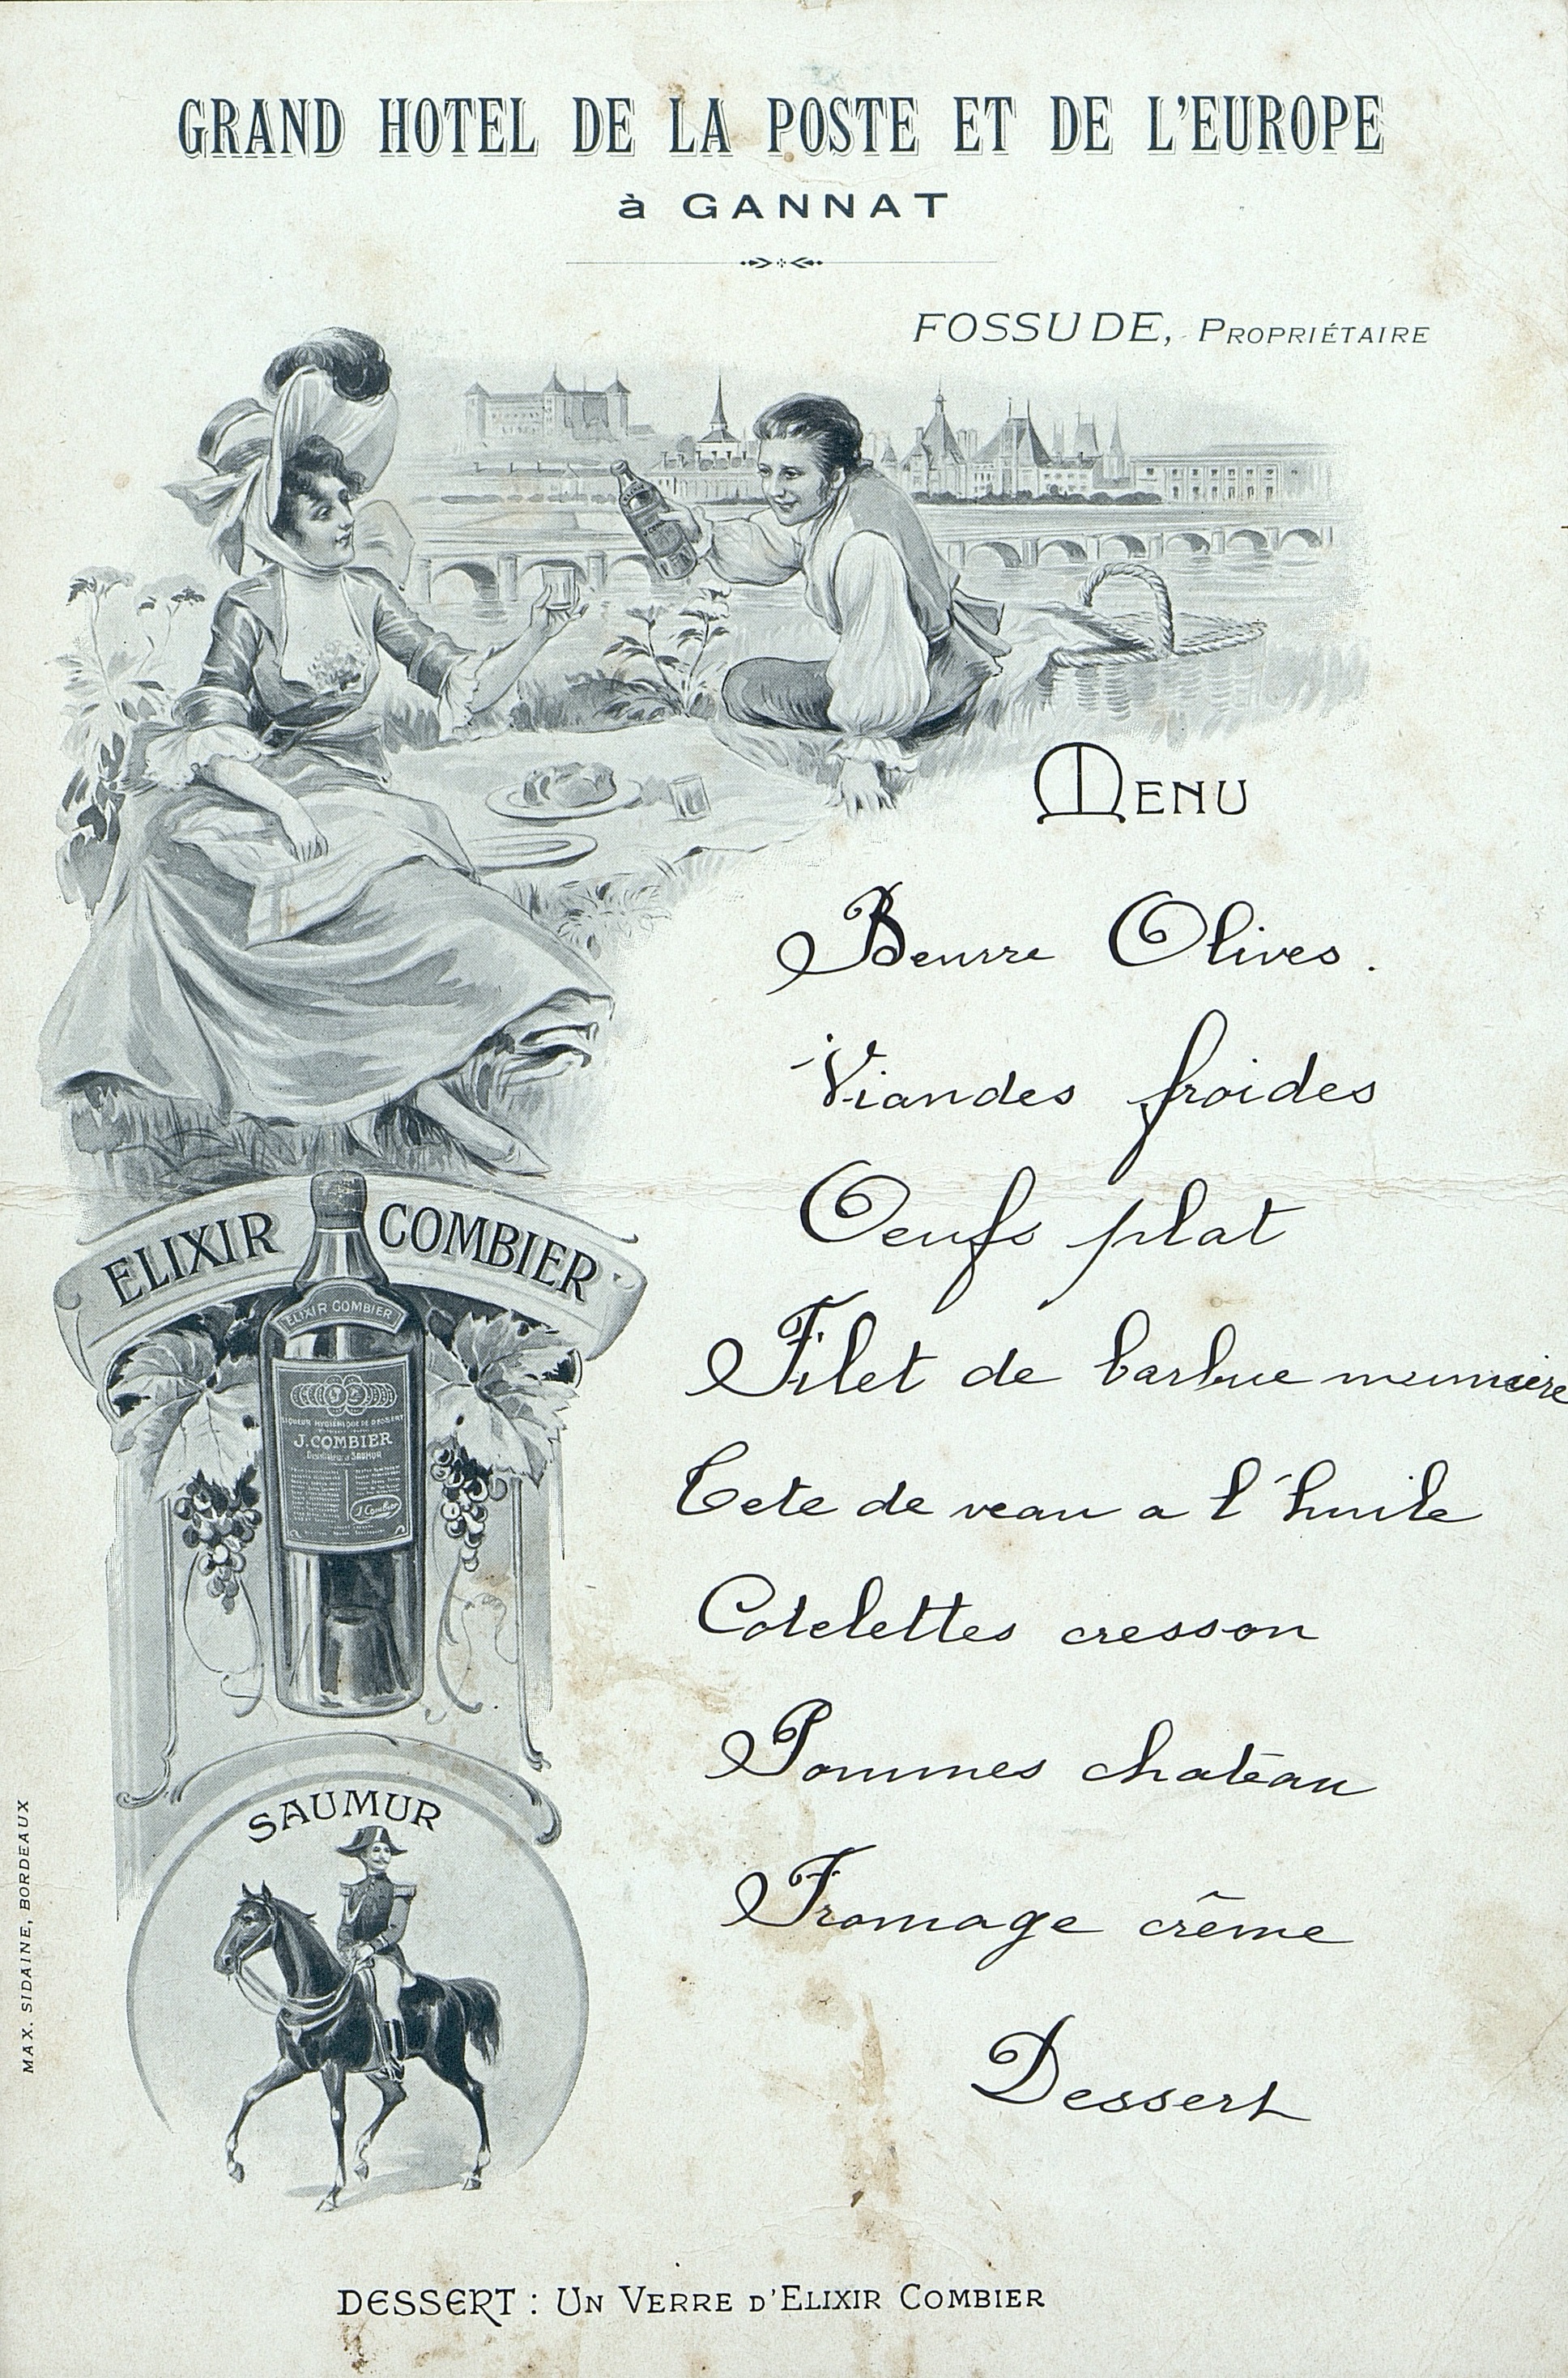 GRAND HOTEL DE LA POSTE ET DE L'EUROPE
à GANNAT
FOSSUDE, PROPRIÉTAIRE
MENU
Beurre Olives.
Viandes froides
Oeufs plat
Filet de barbue meuniere
Tete de veau a l'huile
Cotelettes cresson
Pommes chateau
Fromage crême
Dessert
ELIXIR COMBIER
ELIXIR COMBIER
LIQUEUR HYGIÉNIQUE DE DESSERT
J. COMBIER
Distillateur à SAUMUR
J. Combier
SAUMUR
MAX. SIDAINE, BORDEAUX
DESSERT : UN VERRE D'ELIXIR COMBIER